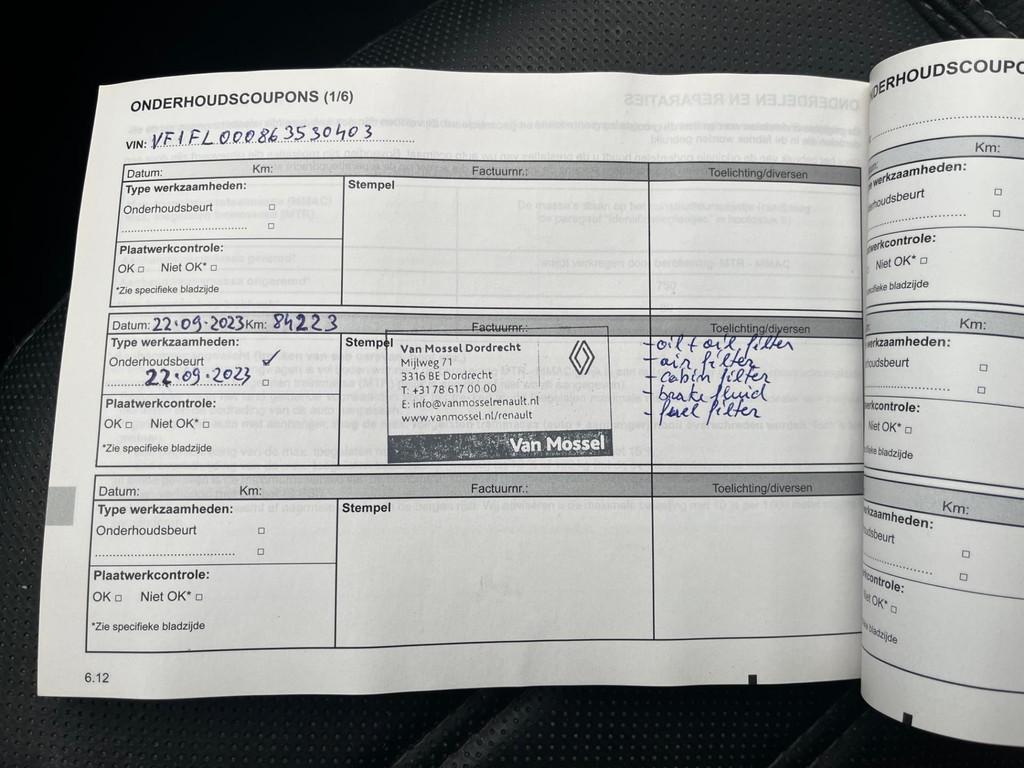 ONDERHOUDSCOUPONS (1/6)
VIN: VF1FL000863530403
Datum: Km: Factuurnr.: Toelichting/diversen
Type werkzaamheden: Stempel
Onderhoudsbeurt
Plaatwerkcontrole:
OK Niet OK*
*Zie specifieke bladzijde
Datum: 22·09·2023 Km: 84223 Factuurnr.: Toelichting/diversen
Type werkzaamheden: Stempel
Onderhoudsbeurt ✓
22·09·2023
Plaatwerkcontrole:
OK Niet OK*
*Zie specifieke bladzijde
Van Mossel Dordrecht
Mijlweg 71
3316 BE Dordrecht
T: +31 78 617 00 00
E: info@vanmosselrenault.nl
www.vanmossel.nl/renault
Van Mossel
- oil + oil filter
- air filter
- cabin filter
- brake fluid
- fuel filter
Datum: Km: Factuurnr.: Toelichting/diversen
Type werkzaamheden: Stempel
Onderhoudsbeurt
Plaatwerkcontrole:
OK Niet OK*
*Zie specifieke bladzijde
6.12
DERHOUDSCOUPO
Km:
werkzaamheden:
houdsbeurt
werkcontrole:
Niet OK*
bladzijde
Km:
werkzaamheden:
houdsbeurt
werkcontrole:
Niet OK*
bladzijde
Km:
kzaamheden:
dsbeurt
controle:
Niet OK*
bladzijde